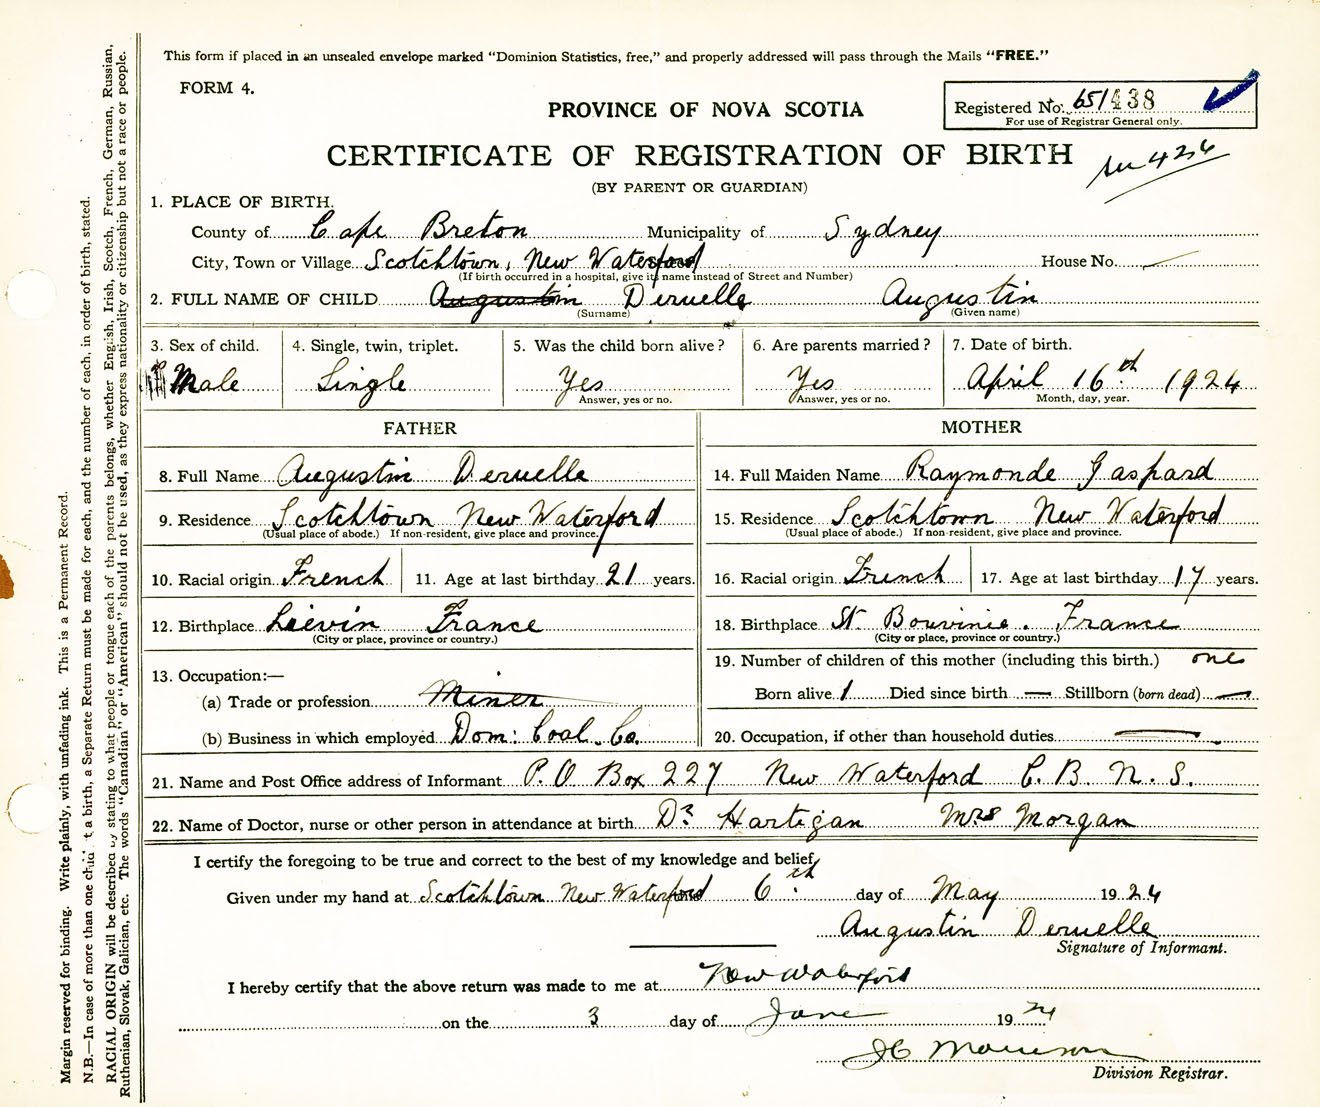 This form if placed in an unsealed envelope marked "Dominion Statistics, free," and properly addressed will pass through the Mails "FREE."
FORM 4.
Registered No. 651438
For use of Registrar General only.
PROVINCE OF NOVA SCOTIA
CERTIFICATE OF REGISTRATION OF BIRTH
426
(BY PARENT OR GUARDIAN)
1. PLACE OF BIRTH.
County of Cape Breton Municipality of Sydney
City, Town or Village Scotchtown, New Waterford House No.
(If birth occurred in a hospital, give its name instead of Street and Number)
2. FULL NAME OF CHILD Augustin Deruelle Augustin
(Surname) (Given name)
3. Sex of child. 4. Single, twin, triplet. 5. Was the child born alive? 6. Are parents married? 7. Date of birth.
Male Single Yes Yes April 16th 1924
Answer, yes or no. Answer, yes or no. Month, day, year.
FATHER MOTHER
8. Full Name Augustin Deruelle 14. Full Maiden Name Raymonde Gaspard
9. Residence Scotchtown New Waterford 15. Residence Scotchtown New Waterford
(Usual place of abode.) If non-resident, give place and province. (Usual place of abode.) If non-resident, give place and province.
10. Racial origin French 11. Age at last birthday 21 years. 16. Racial origin French 17. Age at last birthday 17 years.
12. Birthplace Lievin France 18. Birthplace St. Bouvinie. France
(City or place, province or country.) (City or place, province or country.)
13. Occupation:— 19. Number of children of this mother (including this birth.) one
(a) Trade or profession Miner Born alive 1 Died since birth — Stillborn (born dead) —
(b) Business in which employed Dom: Coal. Co. 20. Occupation, if other than household duties —
21. Name and Post Office address of Informant P.O Box 227 New Waterford C. B N. S.
22. Name of Doctor, nurse or other person in attendance at birth Dr Hartigan Mrs Morgan
I certify the foregoing to be true and correct to the best of my knowledge and belief,
Given under my hand at Scotchtown New Waterford 6th day of May 1924
Augustin Deruelle
Signature of Informant.
I hereby certify that the above return was made to me at New Waterford
on the 3 day of June 1924
JC Morrison
Division Registrar.
Margin reserved for binding. Write plainly, with unfading ink. This is a Permanent Record.
N.B.—In case of more than one child at a birth, a Separate Return must be made for each, and the number of each, in order of birth, stated.
RACIAL ORIGIN will be described by stating to what people or tongue each of the parents belongs, whether English, Irish, Scotch, French, German, Russian,
Ruthenian, Slovak, Galician, etc. The words "Canadian" or "American" should not be used, as they express nationality or citizenship but not a race or people.